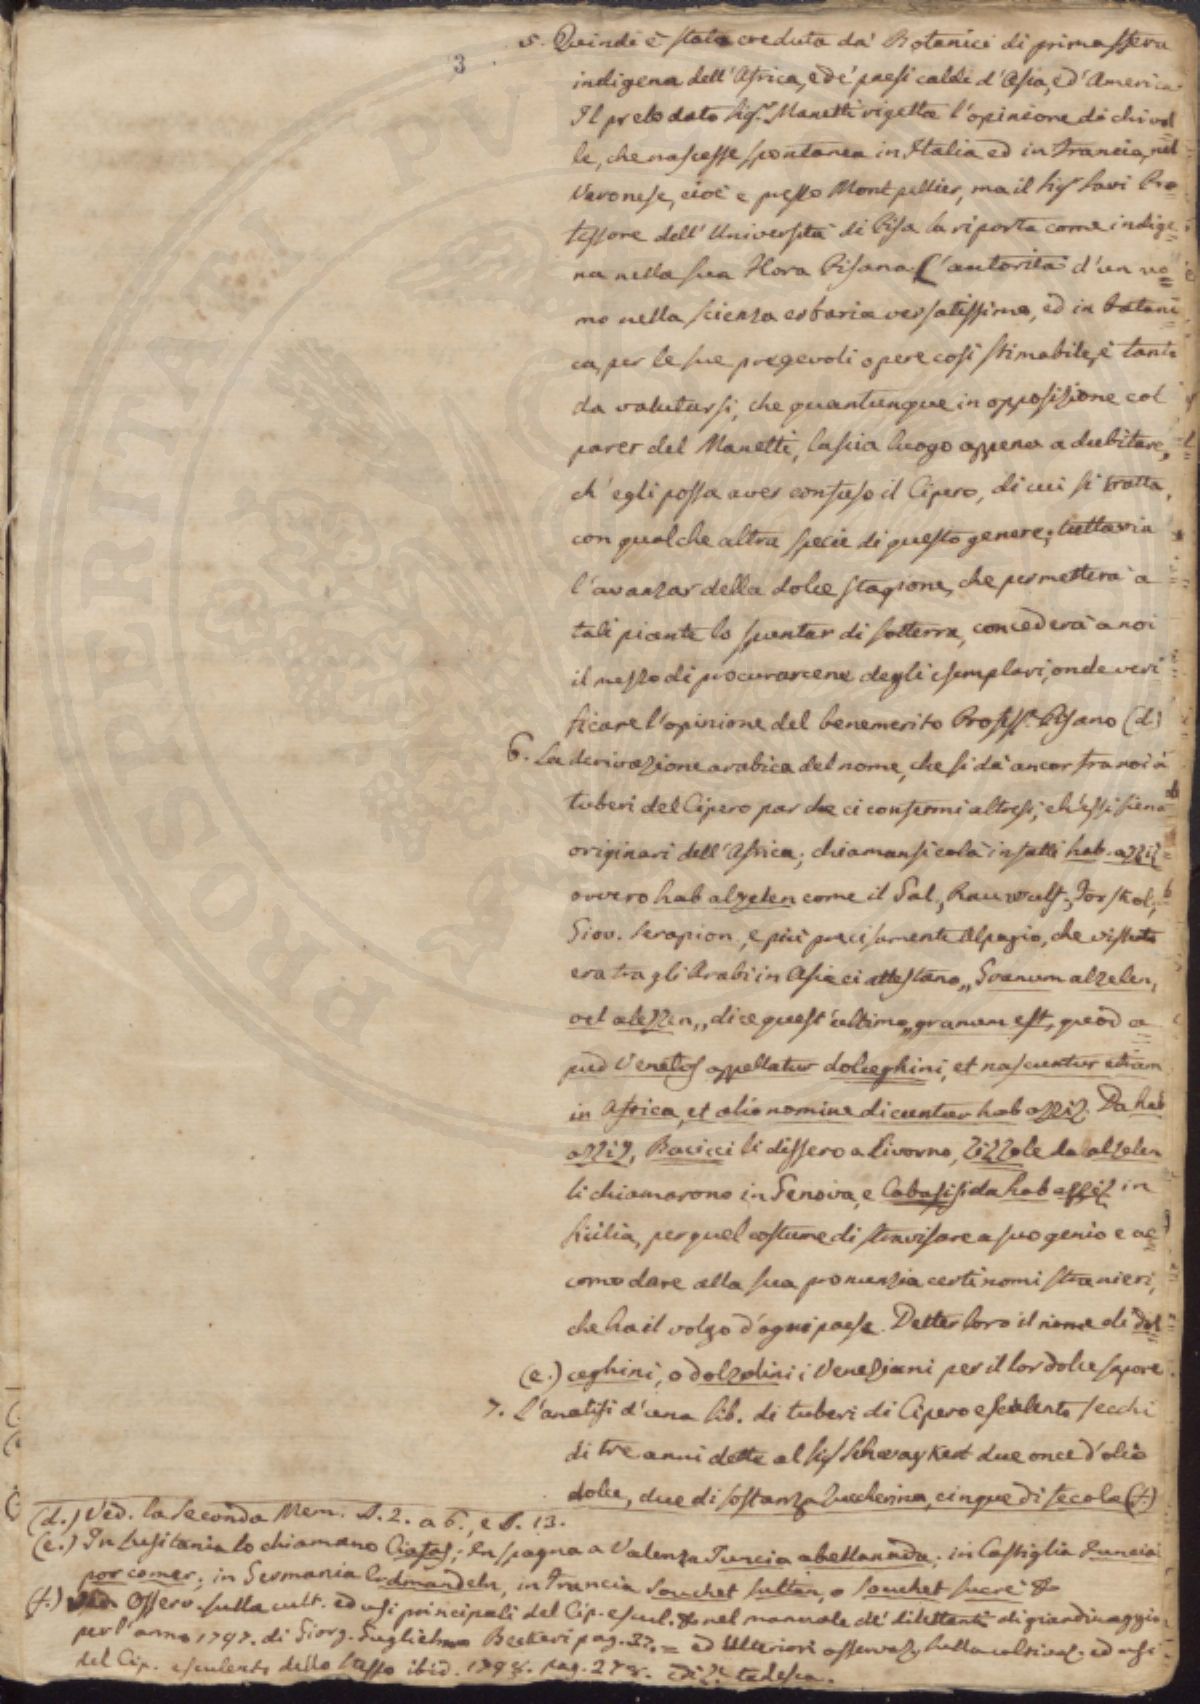 3
5. Quindi è stata creduta da' Botanici di prima sfera
indigena dell'Africa, e de' paesi caldi d'Asia, e d'America
Il prelodato Sig.r Manetti rigetta l'opinione di chi vol
le, che nascesse spontanea in Italia ed in Francia, nel
Veronese, cioè e presso Montpellier, ma il Sig.r Savi Pro
fessore dell'Università di Pisa la riporta come indige=
na nella sua Flora Pisana. L'autorità d'un uo=
mo nella scienza erbaria versatissimo, ed in botani
ca, per le sue pregevoli opere così stimabile, è tanto
da valutarsi, che quantunque in opposizione col
parer del Manetti, lascia luogo appena a dubitare,
ch'egli possa aver confuso il Cipero, di cui si tratta,
con qualche altra specie di questo genere; tuttavia
l'avanzar della dolce stagione, che permetterà a
tali piante lo spuntar di sotterra, concederà a noi
il mezzo di procurarcene degli esemplari, onde veri
ficare l'opinione del benemerito Profess.e Pisano (d.)
6. La derivazione arabica del nome, che si dà ancor fra noi a'
tuberi del Cipero par che ci confermi altresì, ch'essi sieno
originari dell'Africa; chiamansi colà infatti hab-azziz
ovvero hab alzelen come il Dal., Rauwolf, Forskol,
Giov. Serapion, e più precisamente Alpagio, che vissuto
era tra gli Arabi in Asia ci attestano „Granum alzelen,
vel alezzen„ dice quest'ultimo „granum est, quod a=
pud Venetos appellatur dolceghini, et nascuntur etiam
in Africa, et alio nomine dicuntur hab azziz. Da hab
azziz, Bacicci li dissero a Livorno, Zizzole da alzelen
li chiamarono in Genova, e Cabasisi da hab assiz in
Sicilia, per quel costume di travisare a suo genio e ac=
comodare alla sua pronunzia certi nomi stranieri,
che ha il volgo d'ogni paese. Detter loro il nome di dol=
(e.) ceghini, o dolzolini i Veneziani per il lor dolce sapore
7. L'analisi d'una lib. di tuberi di Cipero esculento secchi
di tre anni dette al Sig. Schwaykert due once d'olio
dolce, due di sostanza zuccherina, cinque di fecola (f.)
(d.) Ved. la seconda Mem. §. 2. a 6., e §. 13.
(e.) In Lusitania lo chiamano; In Spagna a Valenza Juncia abellanada; in Castiglia Juncia
por comer; in Germania Erdmandeln, in Francia Souchet sultan, o Souchet sucré &c
(f.) Ved. Osserv. sulla cult. ed usi principali del Cip. escul. &c nel manuale de' dilettanti di giardinaggio
per l'anno 1797. di Giorg. Guglielmo Beckeri pag. 37. = ed Ulteriori osservaz. sulla coltivaz. ed usi
del Cip. esculento dello stesso ibid. 1798. pag. 278. Ediz.e tedesca.
PROSPERITATI PVBLICAE